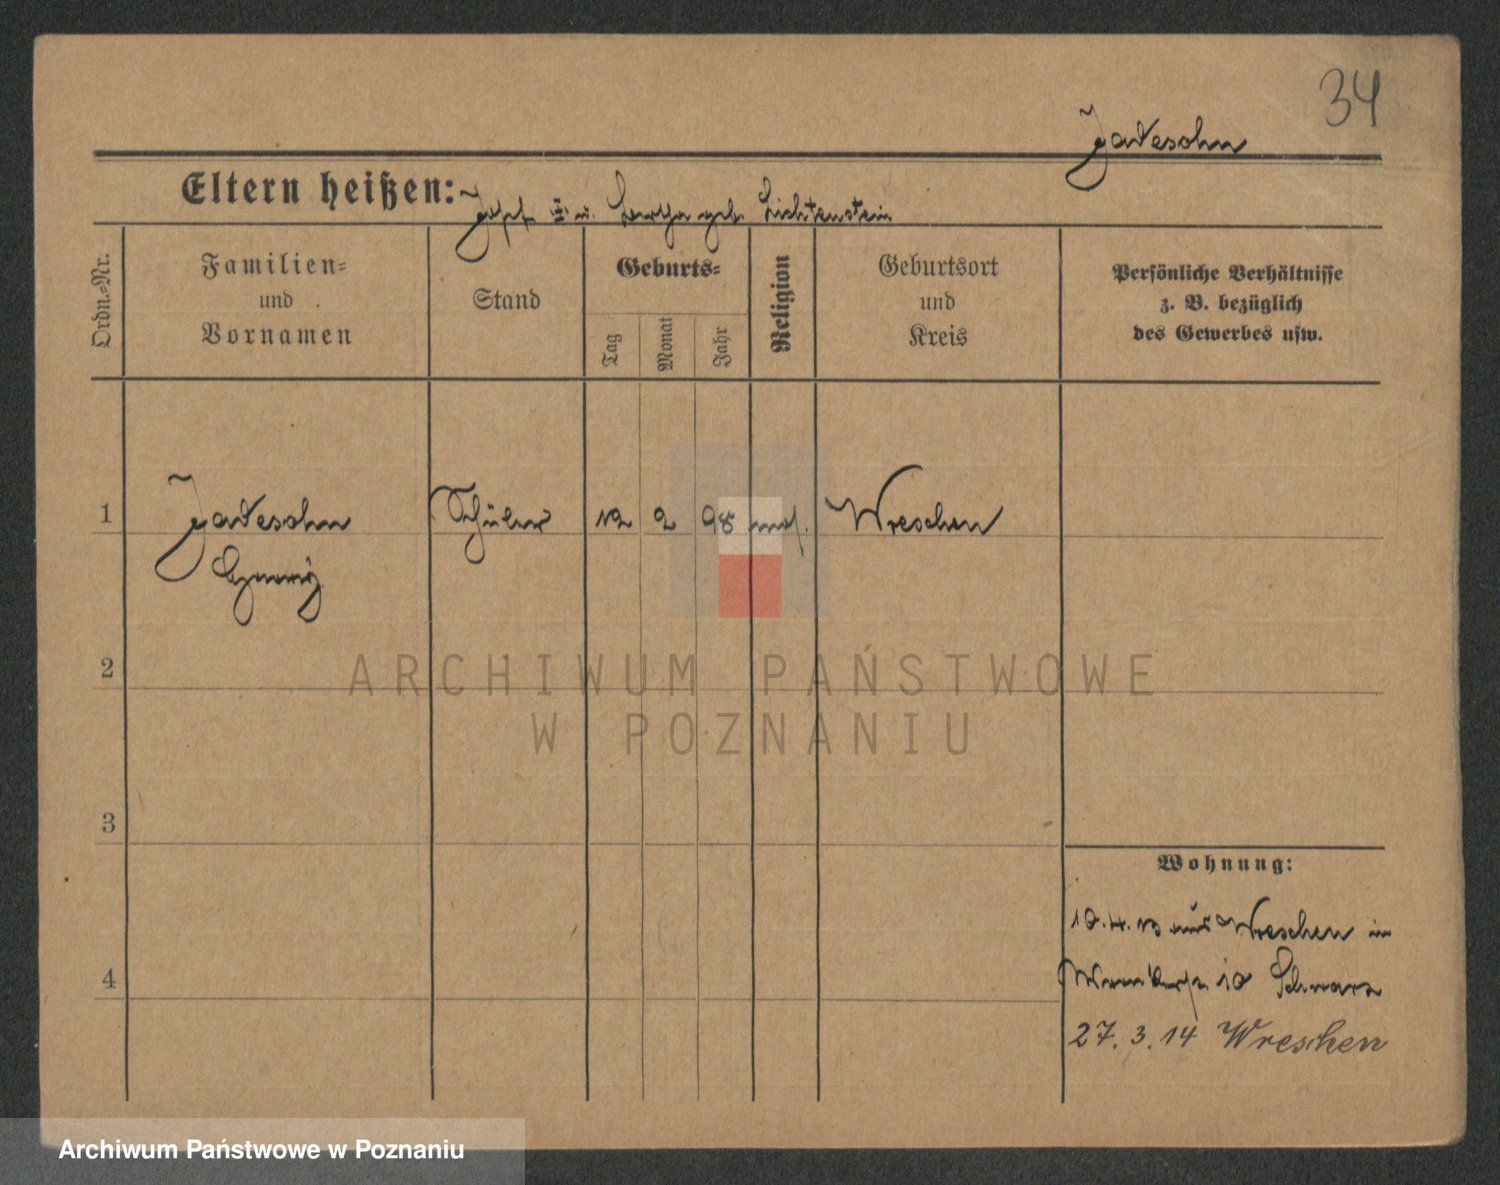 34
Jadesohn
Eltern heißen: Josef II u. Bertha geb. Lichtenstein
Ordn.-Nr.
Familien-
und
Vornamen
Stand
Geburts-
Tag
Monat
Jahr
Religion
Geburtsort
und
Kreis
Persönliche Verhältnisse
z. B. bezüglich
des Gewerbes usw.
1 Jadesohn Schüler 12 2 98 mos. Wreschen
2
3
4
Wohnung:
10.4.13 aus Wreschen in
10 Schwarz
27.3.14 Wreschen
ARCHIWUM PAŃSTWOWE
W POZNANIU
Archiwum Państwowe w Poznaniu